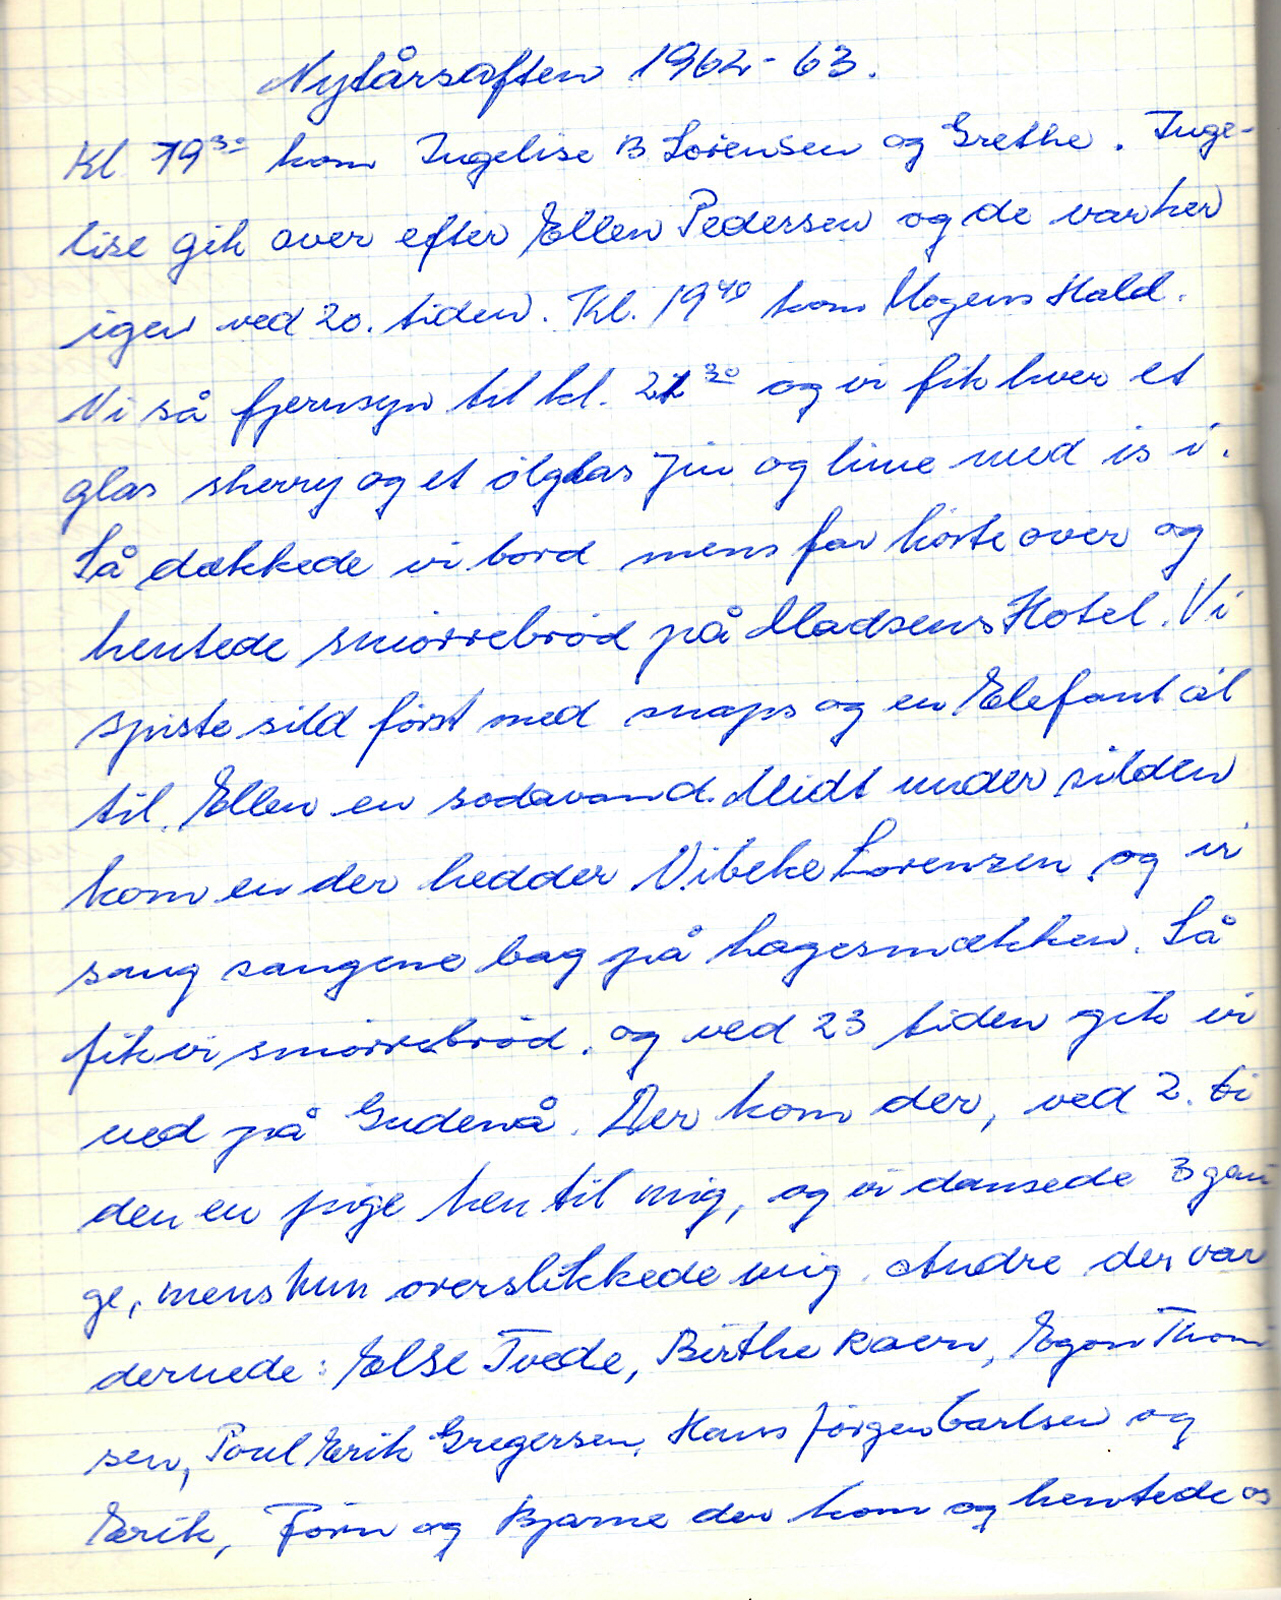 Nytårsaften 1962-63.
Kl 19³⁰ kom Ingelise B Sørensen og Grethe. Inge-
lise gik over efter Ellen Pedersen og de var her
igen ved 20. tiden. Kl. 19⁴⁰ kom Mogens Hald.
Vi så fjernsyn til kl. 21³⁰ og vi fik hver et
glas sherry og et ølglas jin og lime med is i.
Så dækkede vi bord mens far kørte over og
hentede smørrebrød på Madsens Hotel. Vi
spiste sild først med snaps og en Elefant øl
til. Ellen en sodavand. Midt under silden
kom en der hedder Vibeke Lorenzen og vi
sang sangene bag på hagesmækken. Så
fik vi smørrebrød. og ved 23 tiden gik vi
ned på Gudenå. Der kom der, ved 2. ti
den en pige hen til mig, og vi dansede 3 gan
ge, mens hun overslikkede mig. Andre der var
dernede: Else Tvede, Birthe Raen, Egon Thom
sen, Poul Erik Gregersen, Hans Jørgen Carlsen og
Erik, Førn og Bjarne der kom og hentede os